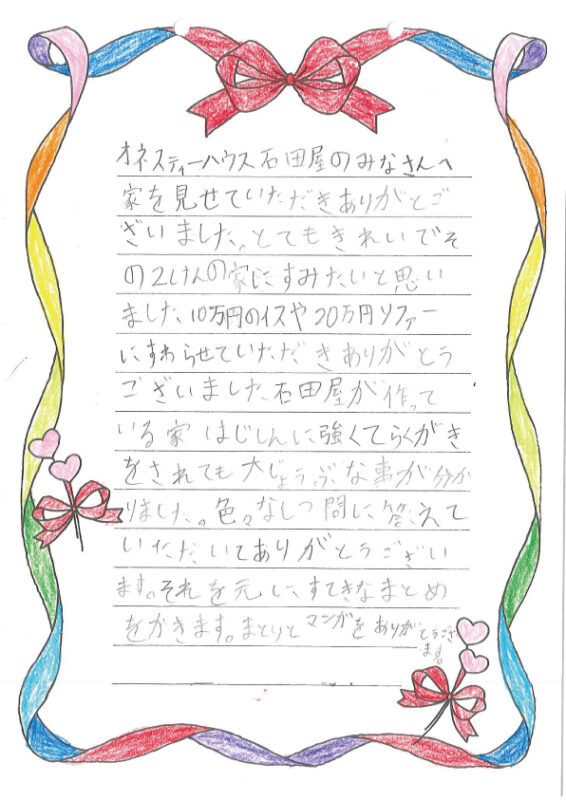 オネスティーハウス石田屋のみなさんへ
家を見せていただきありがとご
ざいました。とてもきれいでそ
の2けんの家にすみたいと思い
ました、10万円のイスや20万円ソファー
にすわらせていただきありがとう
ございました、石田屋が作って
いる家はじしんに強くてらくがき
をされても大じょうぶな事が分か
りました。色々なしつ問に答えて
いただいてありがとうござい
ます。それを元に、すてきなまとめ
をかきます。まとりとマンガをありがとうござ
います。